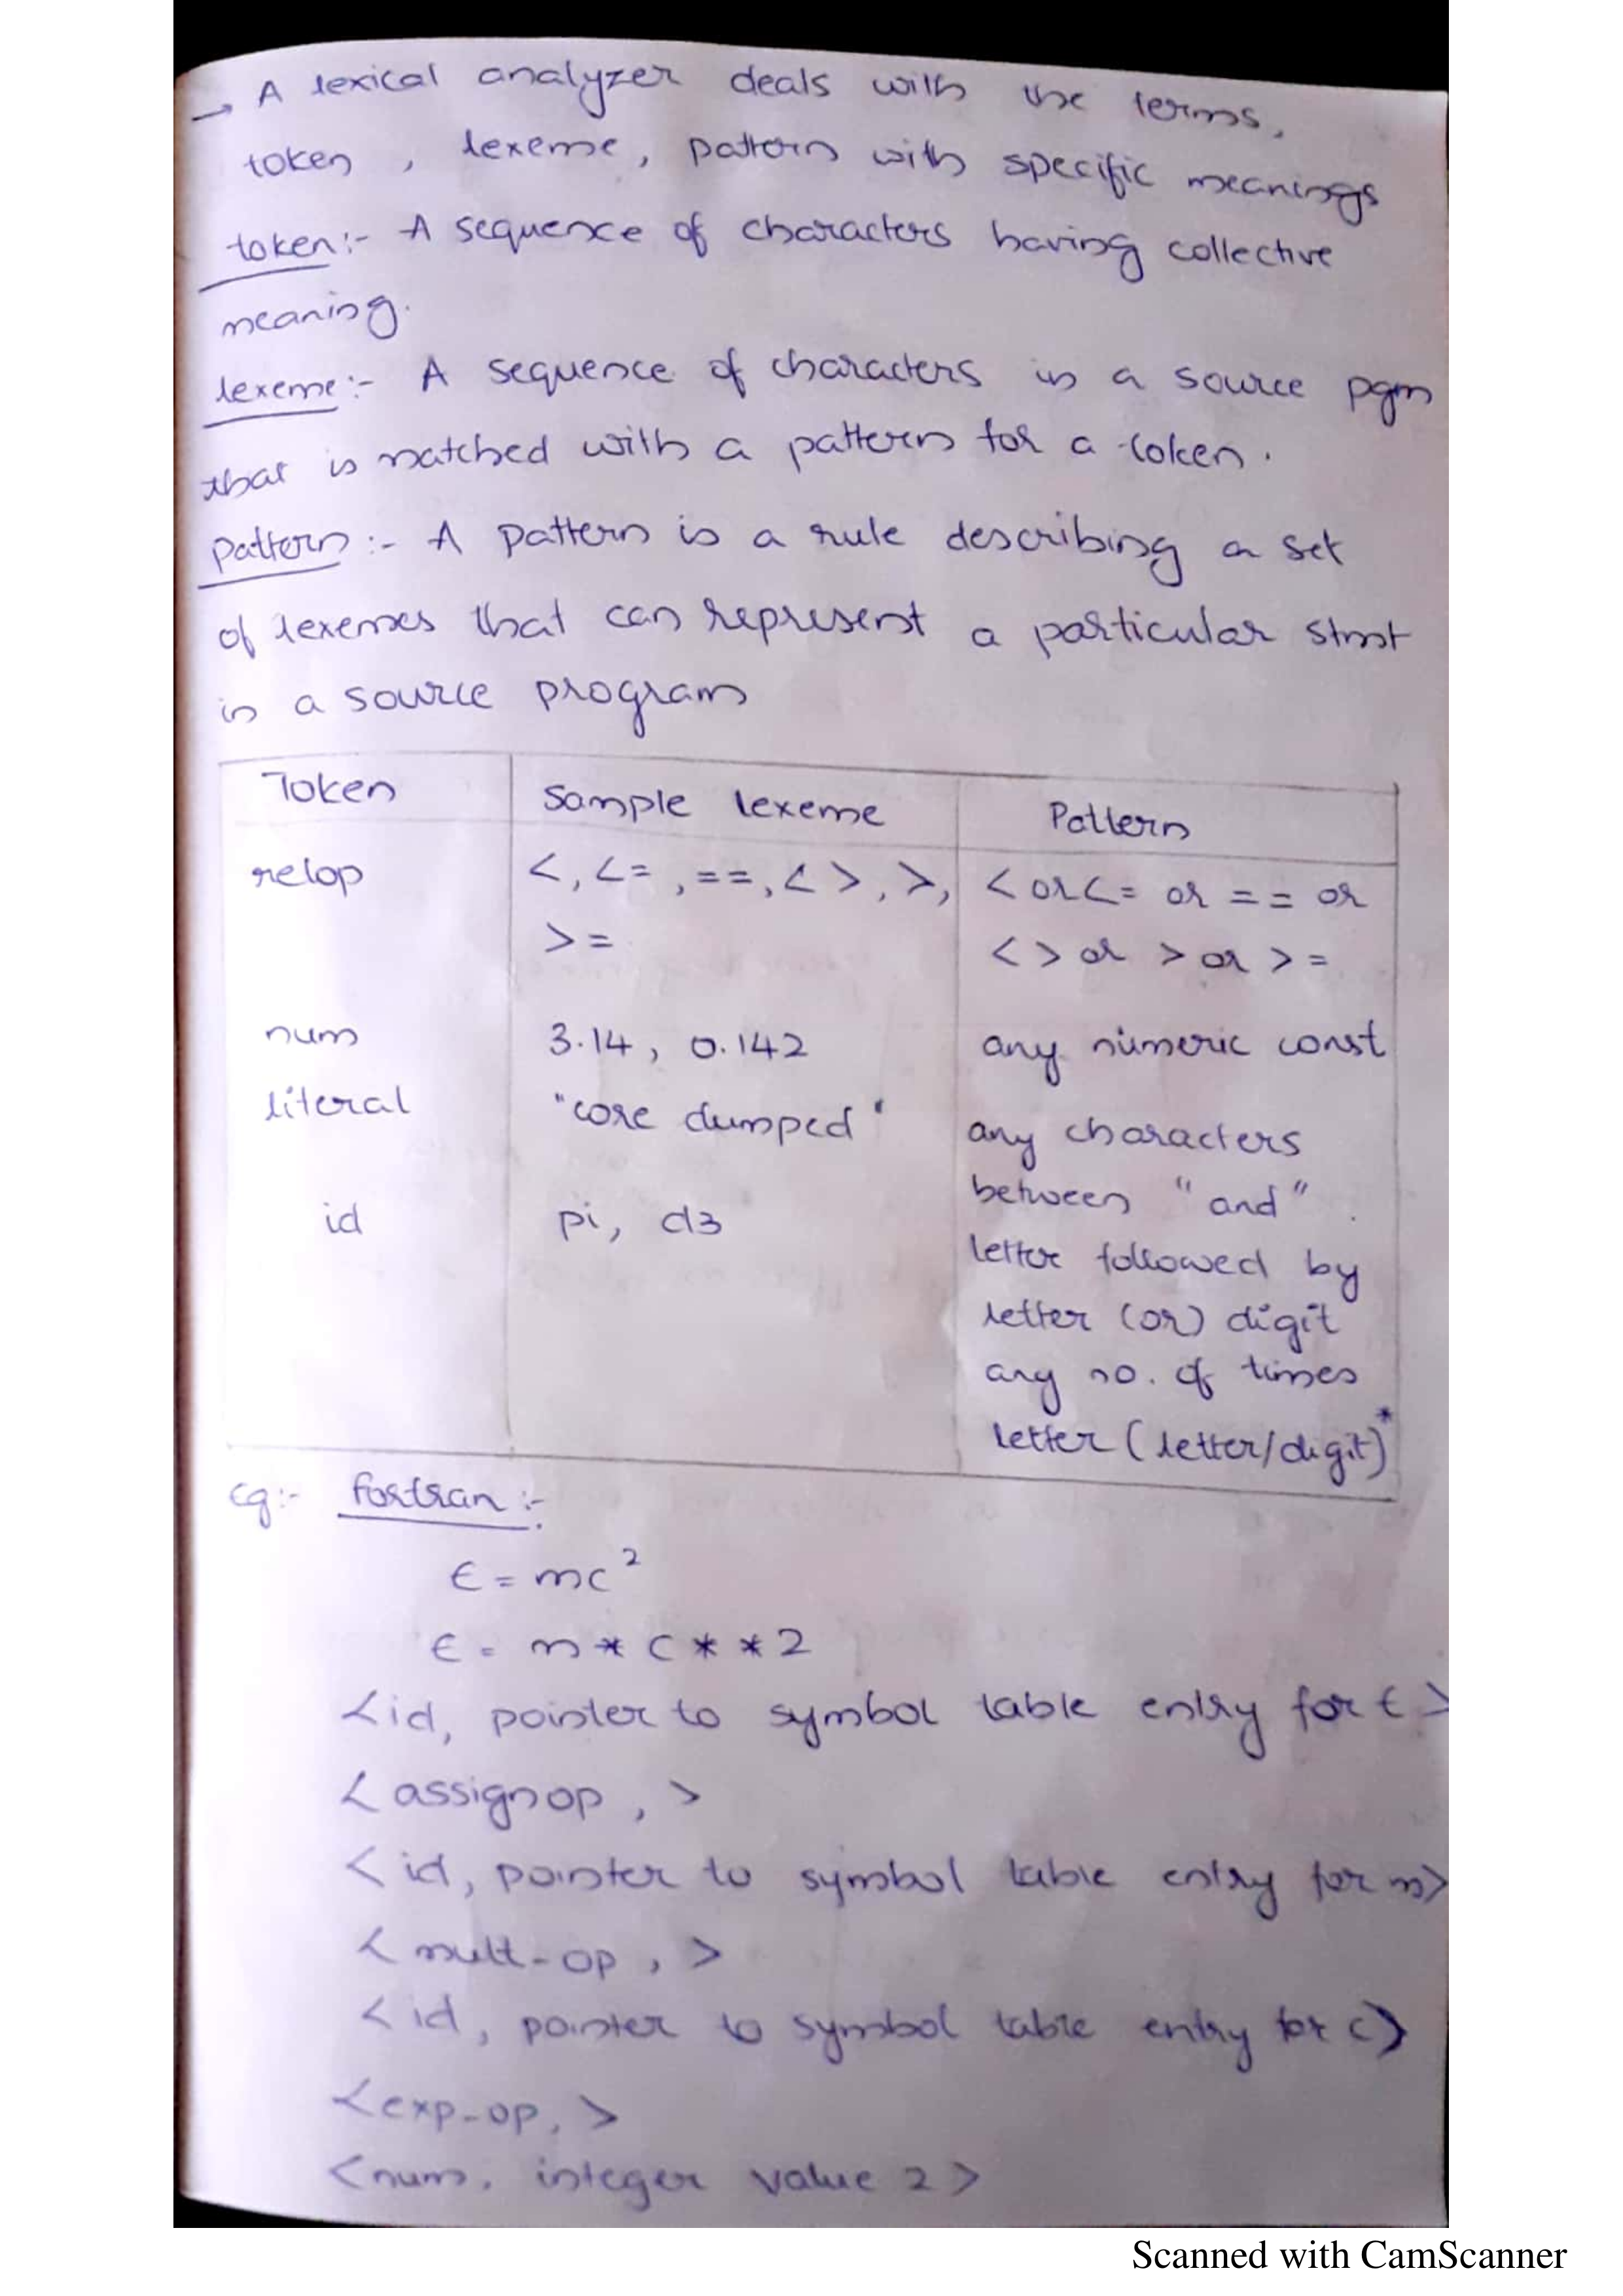 → A lexical analyzer deals with the terms,
token , lexeme, pattern with specific meanings
token:- A sequence of characters having collective
meaning.
lexeme:- A sequence of characters in a source pgm
that is matched with a pattern for a token.
pattern:- A pattern is a rule describing a set
of lexemes that can represent a particular stmt
in a source program
Token Sample lexeme Pattern
relop <, <= , ==, < >, >, < or <= or == or
>= < > or > or >=
num 3.14, 0.142 any numeric const
literal "core dumped" any characters
between "and".
id pi, d3
letter followed by
letter (or) digit
any no. of times
letter (letter/digit)*
eg:- fortran:-
E = mc²
E = m * c * * 2
<id, pointer to symbol table entry for E>
<assignop, >
<id, pointer to symbol table entry for m>
<mult-op, >
<id, pointer to symbol table entry for c>
<exp-op, >
<num, integer value 2>
Scanned with CamScanner